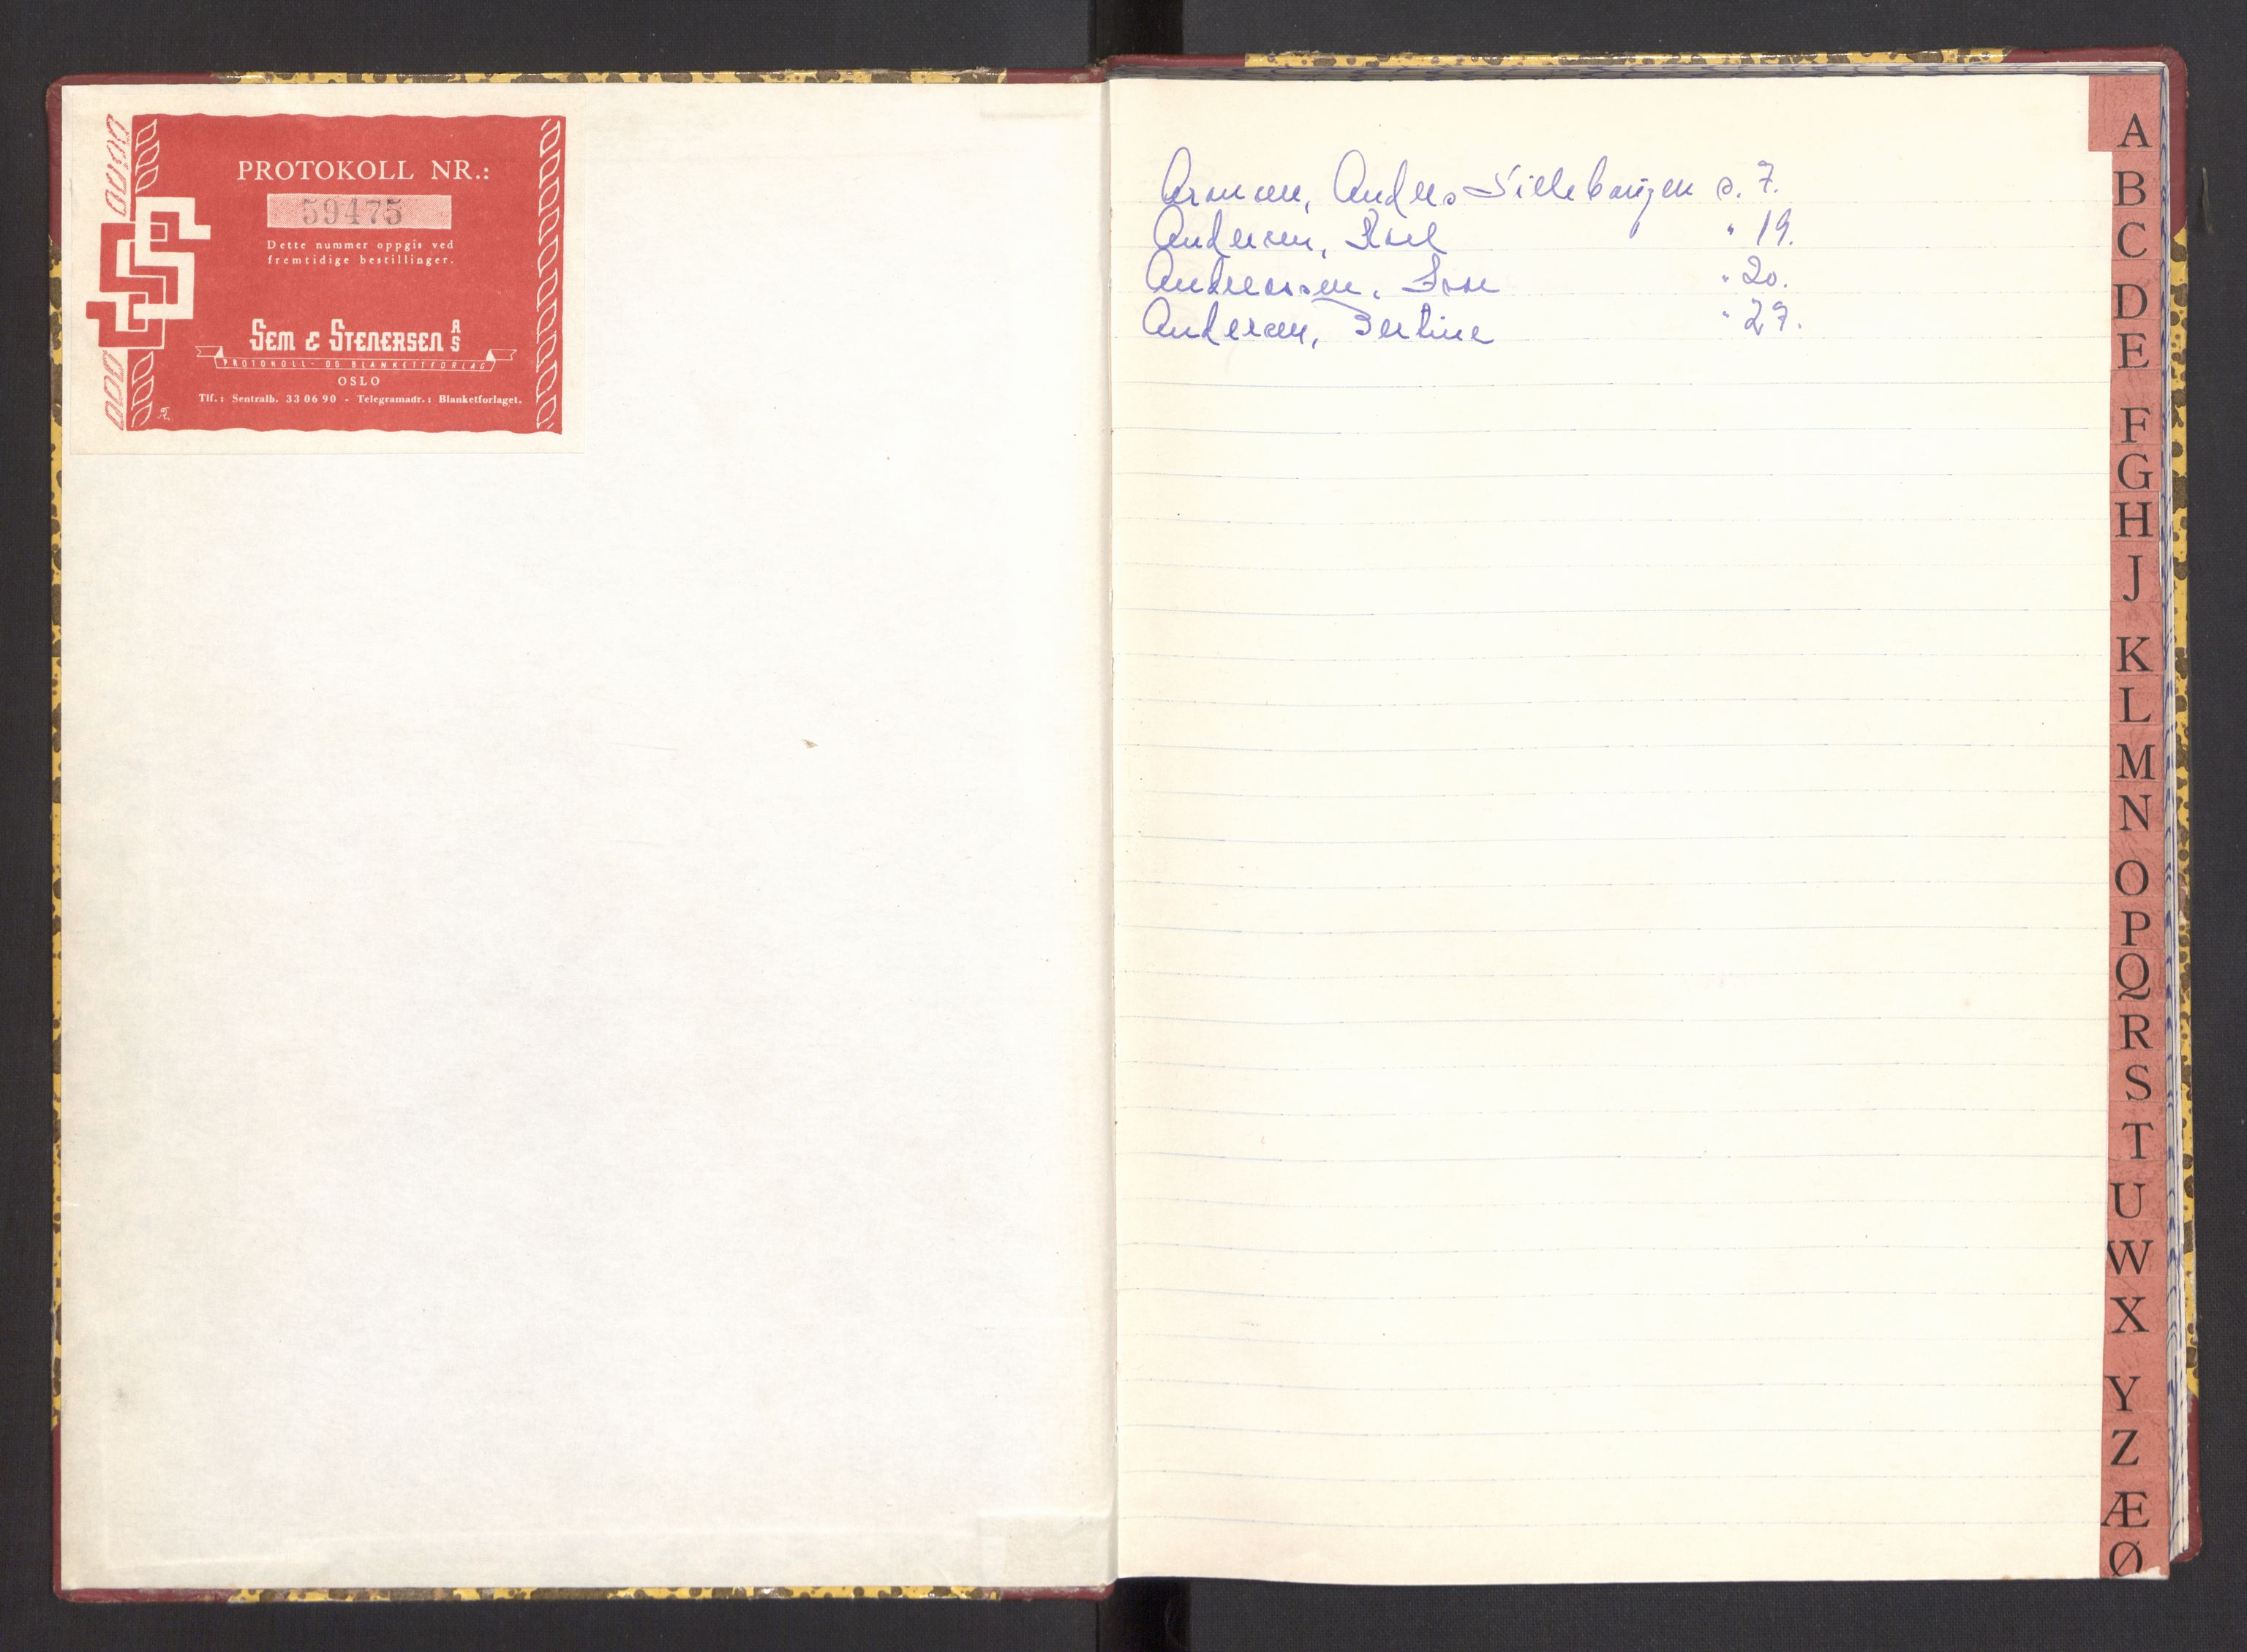 PROTOKOLL NR.:
59475
Dette nummer oppgis ved
fremtidige bestillinger.
SEM & STENERSEN A/S
PROTOKOLL- OG BLANKETTFORLAG
OSLO
Tlf.: Sentralb. 33 06 90 - Telegramadr.: Blanketforlaget.
Anders s. 7.
Andersen, " 19.
Andreassen, " 20.
Andersen, Bertine " 27.
A
B
C
D
E
F
G
H
J
K
L
M
N
O
P
Q
R
S
T
U
W
X
Y
Z
Æ
Ø